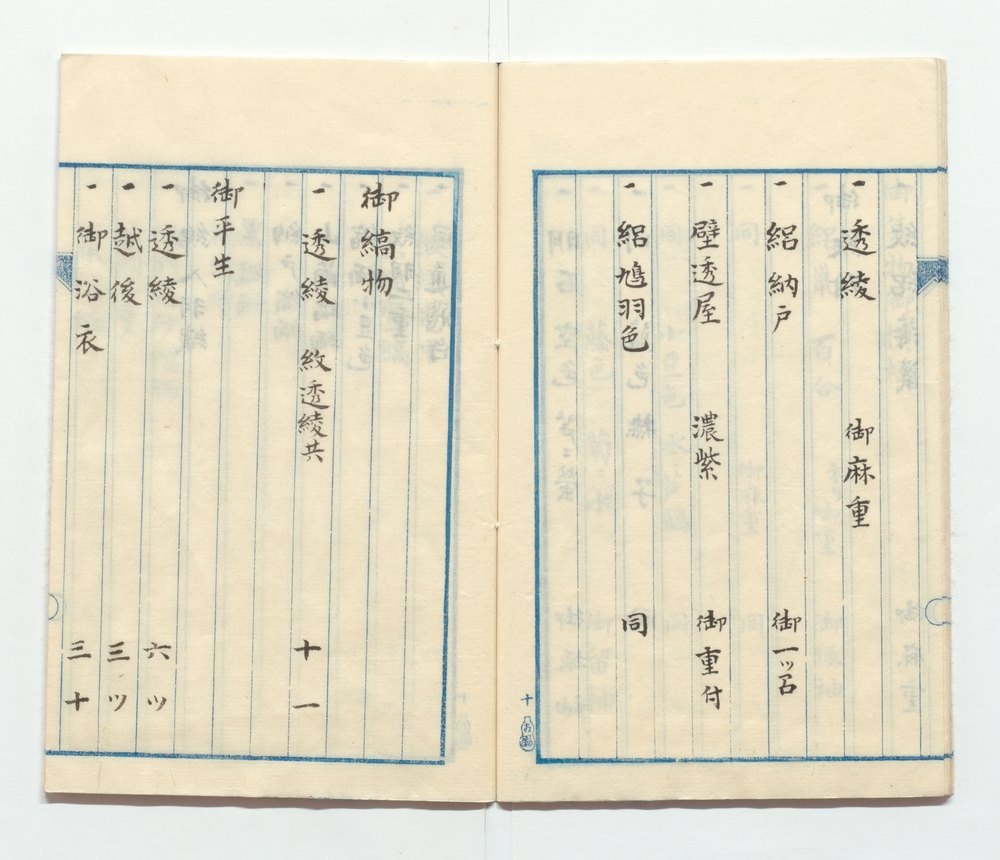 一 透綾 御麻重
一 絽 納戸 御一ッ召
一 壁透屋 濃紫 御重付
一 絽 鳩羽色 同
十
御縞物
一 透綾 紋透綾共 十一
御平生
一 透綾 六ッ
一 越後 三ッ
一 御浴衣 三十